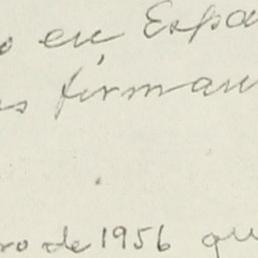 o en Espa
s firman
ro de 1956 qu